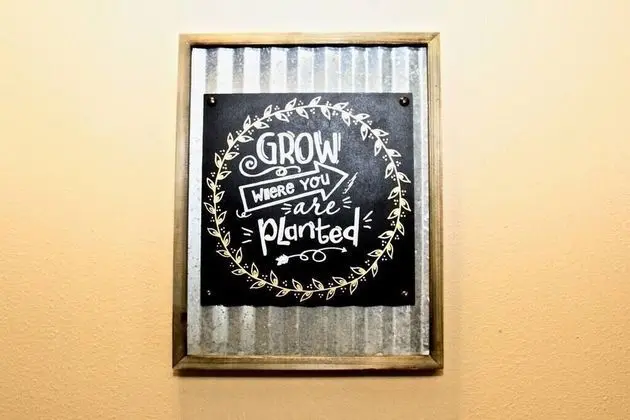 GROW
WHERE YOU
are
PLanted